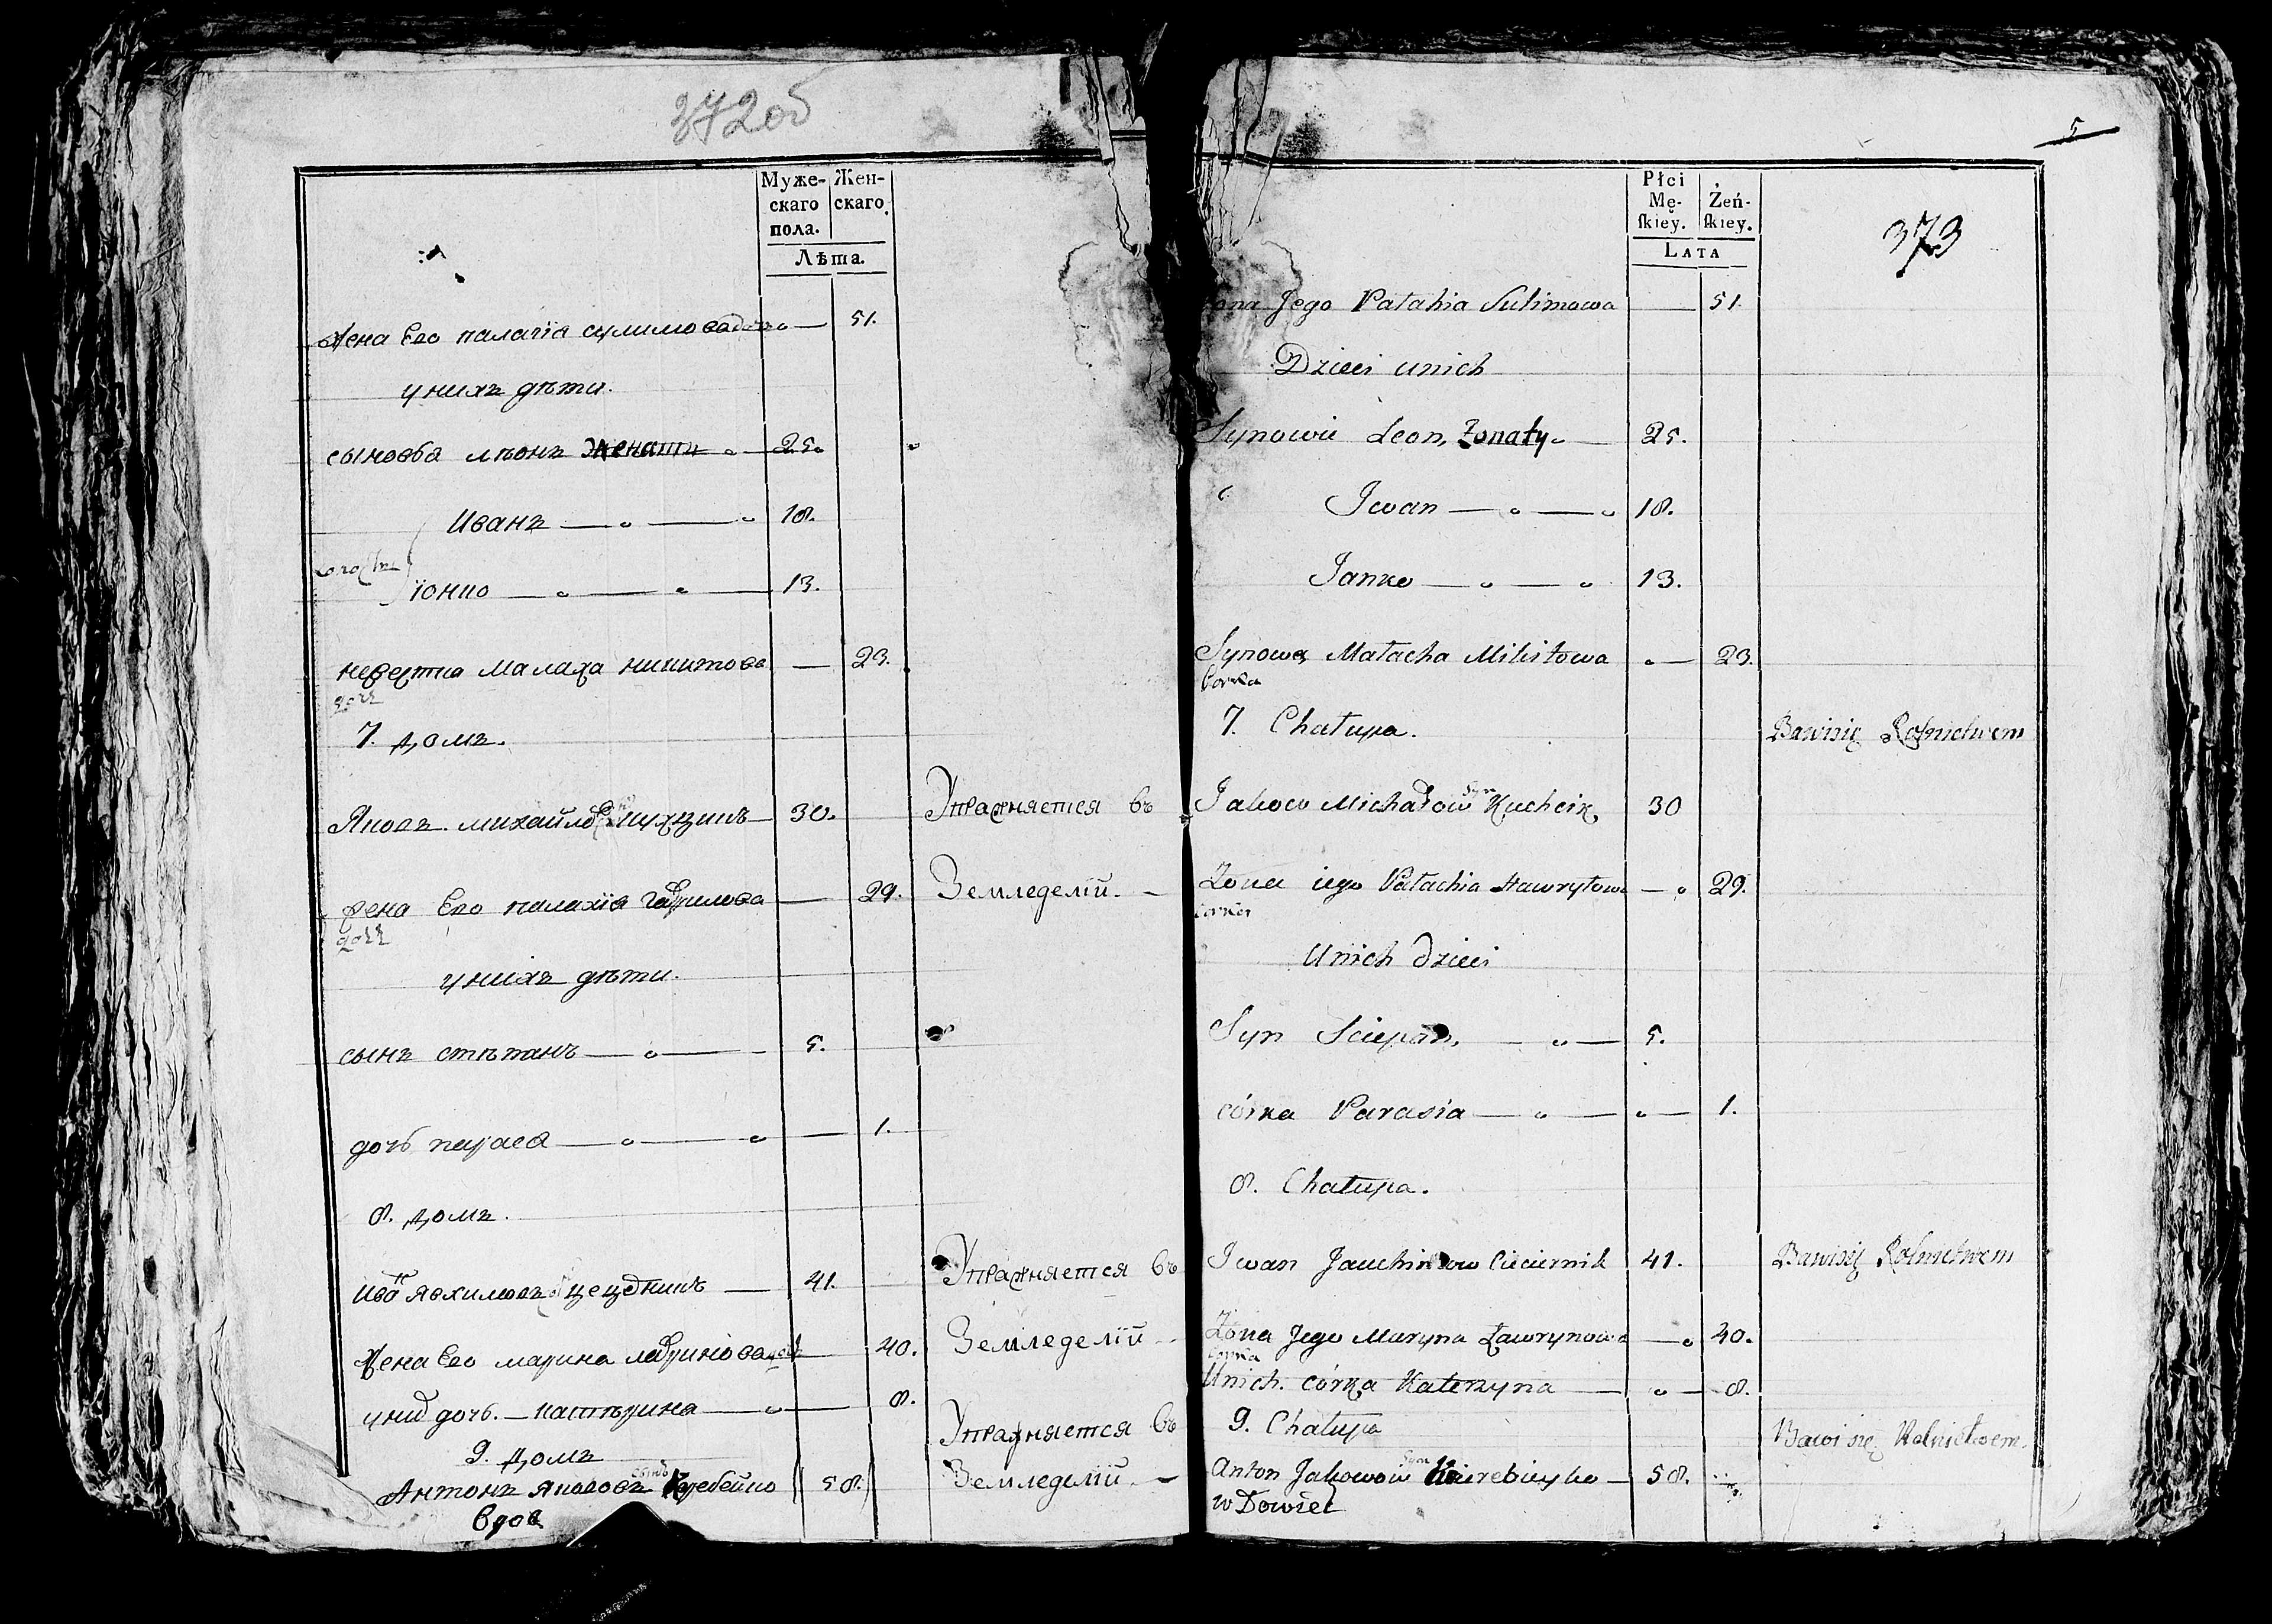 372 об
Муже-
скаго
пола.
Жен-
скаго.
Лѣта.
жена Его палагія сулимова дочь — 51.
у нихъ дѣти.
сыновья лѣонъ женатъ — 25.
Иванъ — 18.
Іонко — 13.
невестка малаха никитова — 23.
дочь
7. домъ.
Яковъ михайловъ 30. Упражняется въ
жена Его палахія гаврилова — 29. Земледеліи. —
дочь
у нихъ дѣти.
сынъ стѣпанъ — 5.
дочь парася — 1.
8. домъ.
Иванъ Явхимовъ 41. Упражняется въ
жена Его марина лавринова дочь — 40. Земледеліи —
у них дочь. — катѣрина — 8.
9. домъ Упражняется въ
Антонъ Яковов сынъ 58. Земледеліи. —
вдов
5
Płci
Mę-
skiey.
Żeń-
skiey.
LATA
373
Jego Patahia Sulimowa — 51.
Dzieci unich
Synowie Leon, żonaty — 25.
Iwan — 18.
Janko — 13.
Synowa Małacha Mikitowa — 23.
Corka
7. Chałupa. Bawisię Rolnictwem
Jakow Michałow Syn Kuchcik 30
Żona iego Pałachia Hawryłowa — 29.
corka
Unich dzieci
Syn Sciepan, — 5.
córka Parasia — 1.
8. Chałupa.
Iwan Jauchimow Cieciernik 41. Bawisię Rolnictwem
Żona Jego Maryna Ławrynowa — 40.
Corka
Unich. córka Katerzyna — 8.
9. Chałupa Bawi się Rolnictwem.
Anton Jakowow Syn — 58.
wDowiec